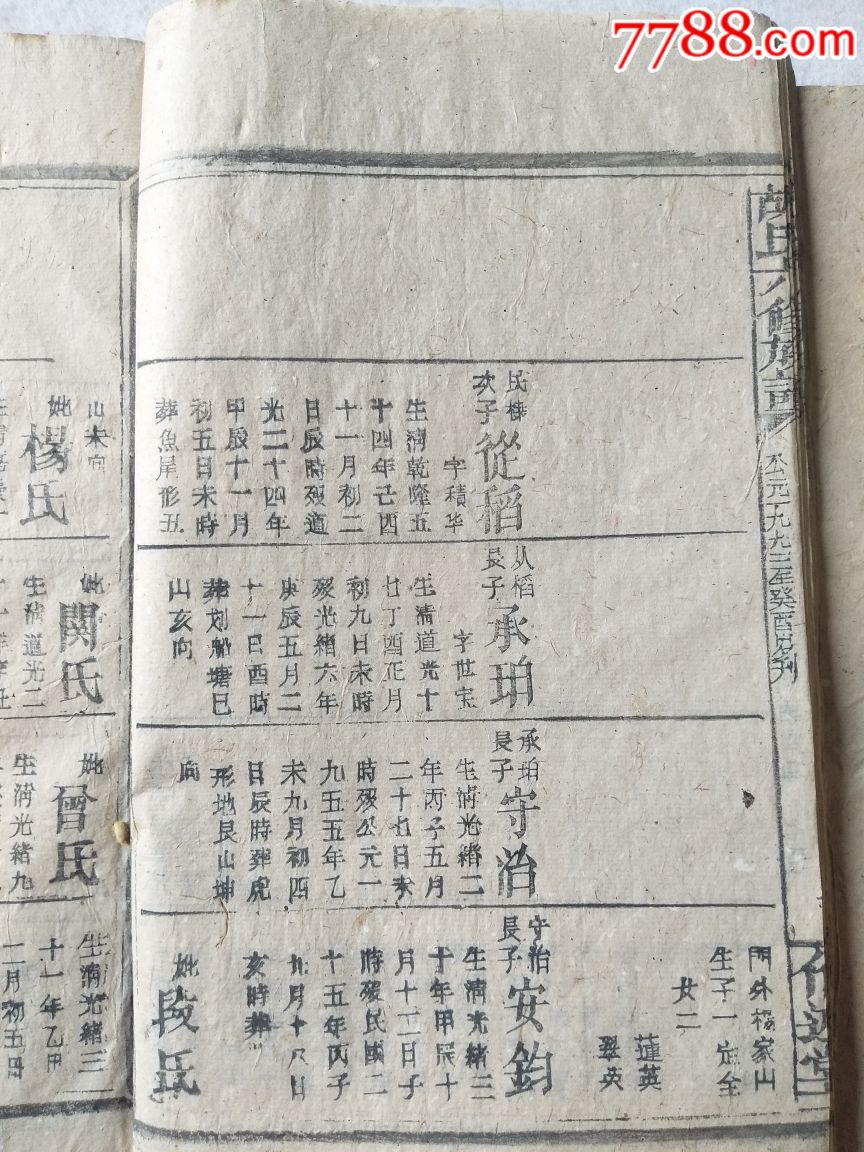 7788.com
胡氏八修族譜
公元一九九三年癸酉歲刊
民棟
次子
從稻
字積华
生清乾隆五
十四年己酉
十一月初二
日辰時殁道
光二十四年
甲辰十一月
初五日未時
葬魚尾形丑
山未向
妣
楊氏
从稻
長子
承珀
字世宝
生清道光十
七丁酉正月
初九日未時
殁光緒六年
庚辰五月二
十一日酉時
葬划船塘巳
山亥向
妣
関氏
生清道光二
承珀
長子
守治
生清光緒二
年丙子五月
二十七日未
時殁公元一
九五五年乙
未九月初四
日辰時葬虎
形地艮山坤
向
妣
曾氏
生清光緒九
門外楊家山
生子一 定全
女二
蓮英
翠英
守治
長子
安鈞
生清光緒三
十年甲辰十
月十二日子
時殁民國二
十五年丙子
九月十八日
亥時葬
妣
段氏
生清光緒三
十一年乙
二月初五日